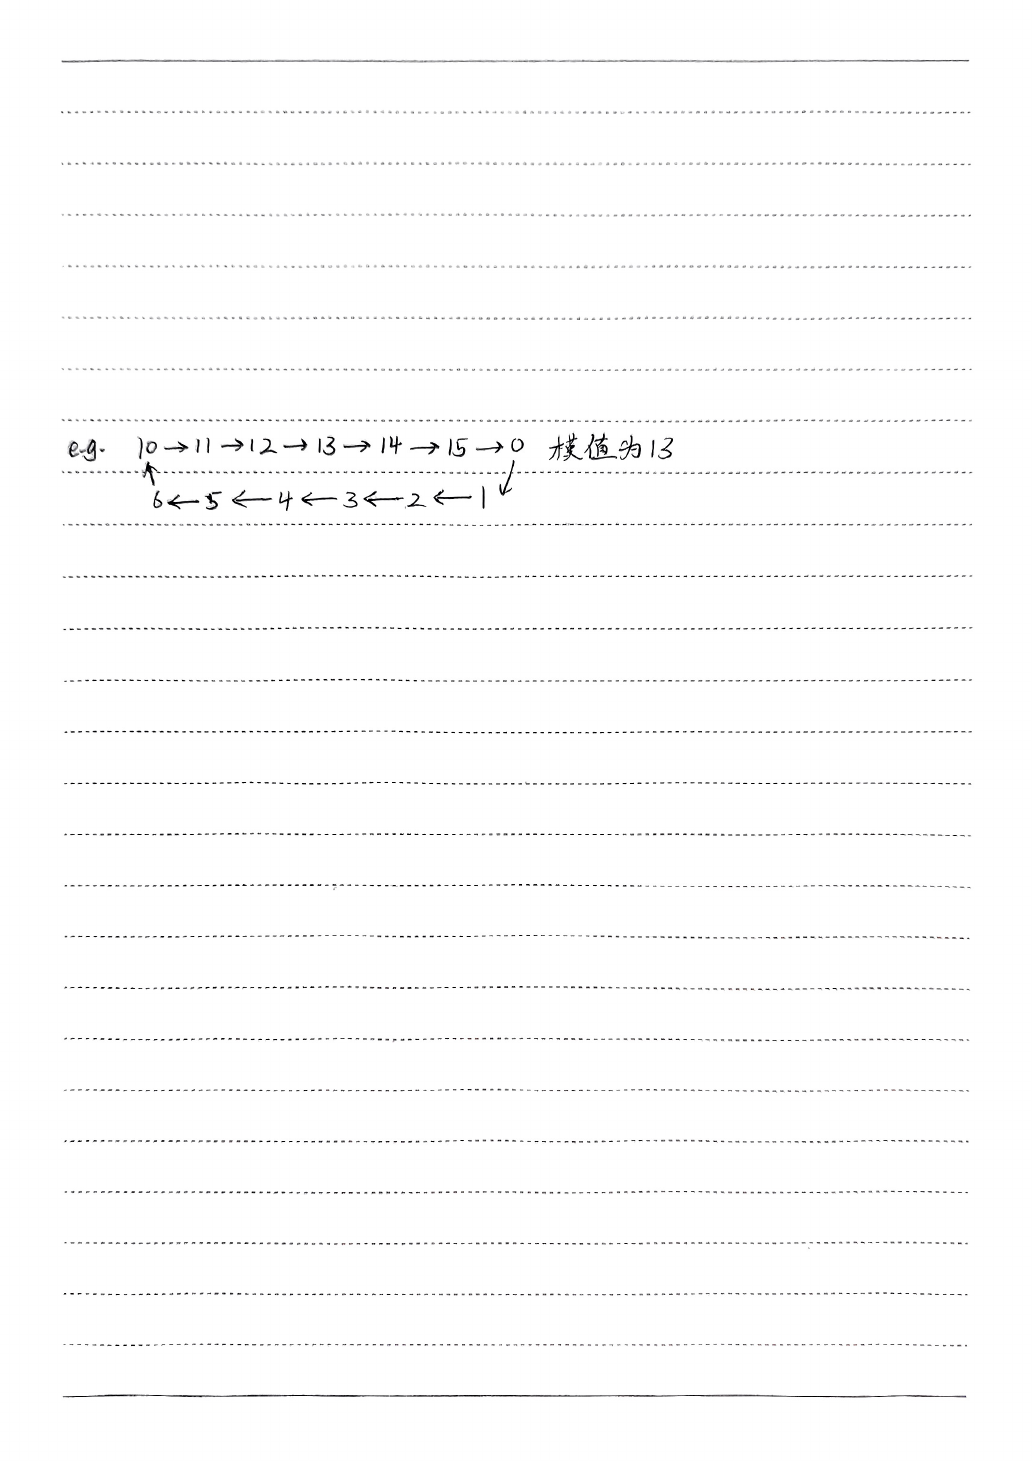 e.g. 10→11→12→13→14→15→0 模值为13
6←5←4←3←2←1